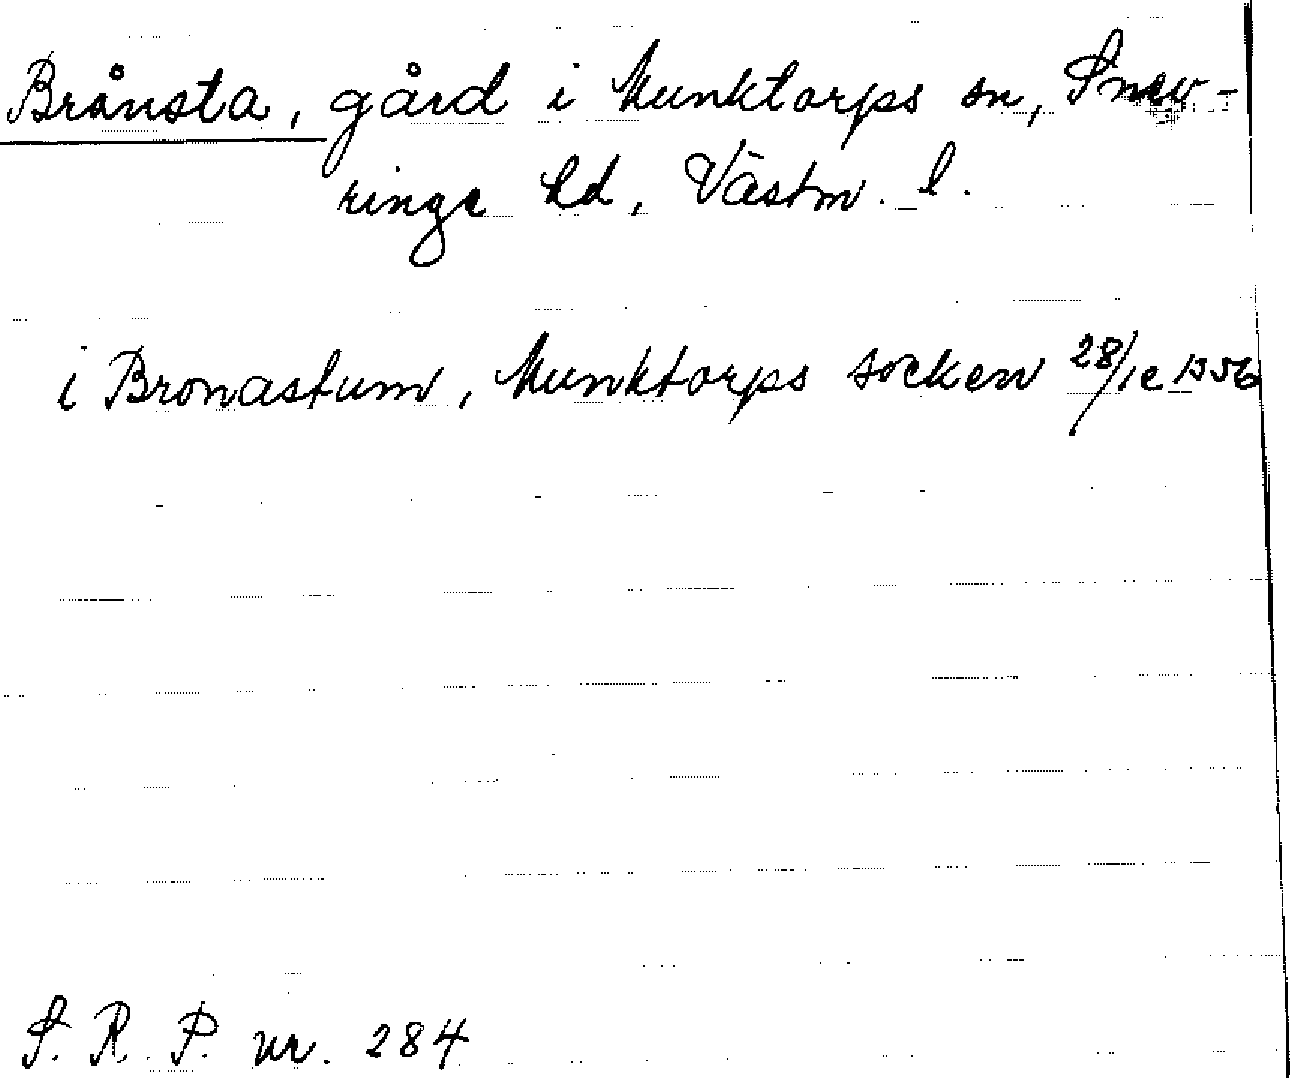 Brånsta, gård i Munktorps sn, Snev-
ringe hd, Västm. l.
i Bronastum, Munktorps socken 28/10 1356
S. R. P. nr. 284